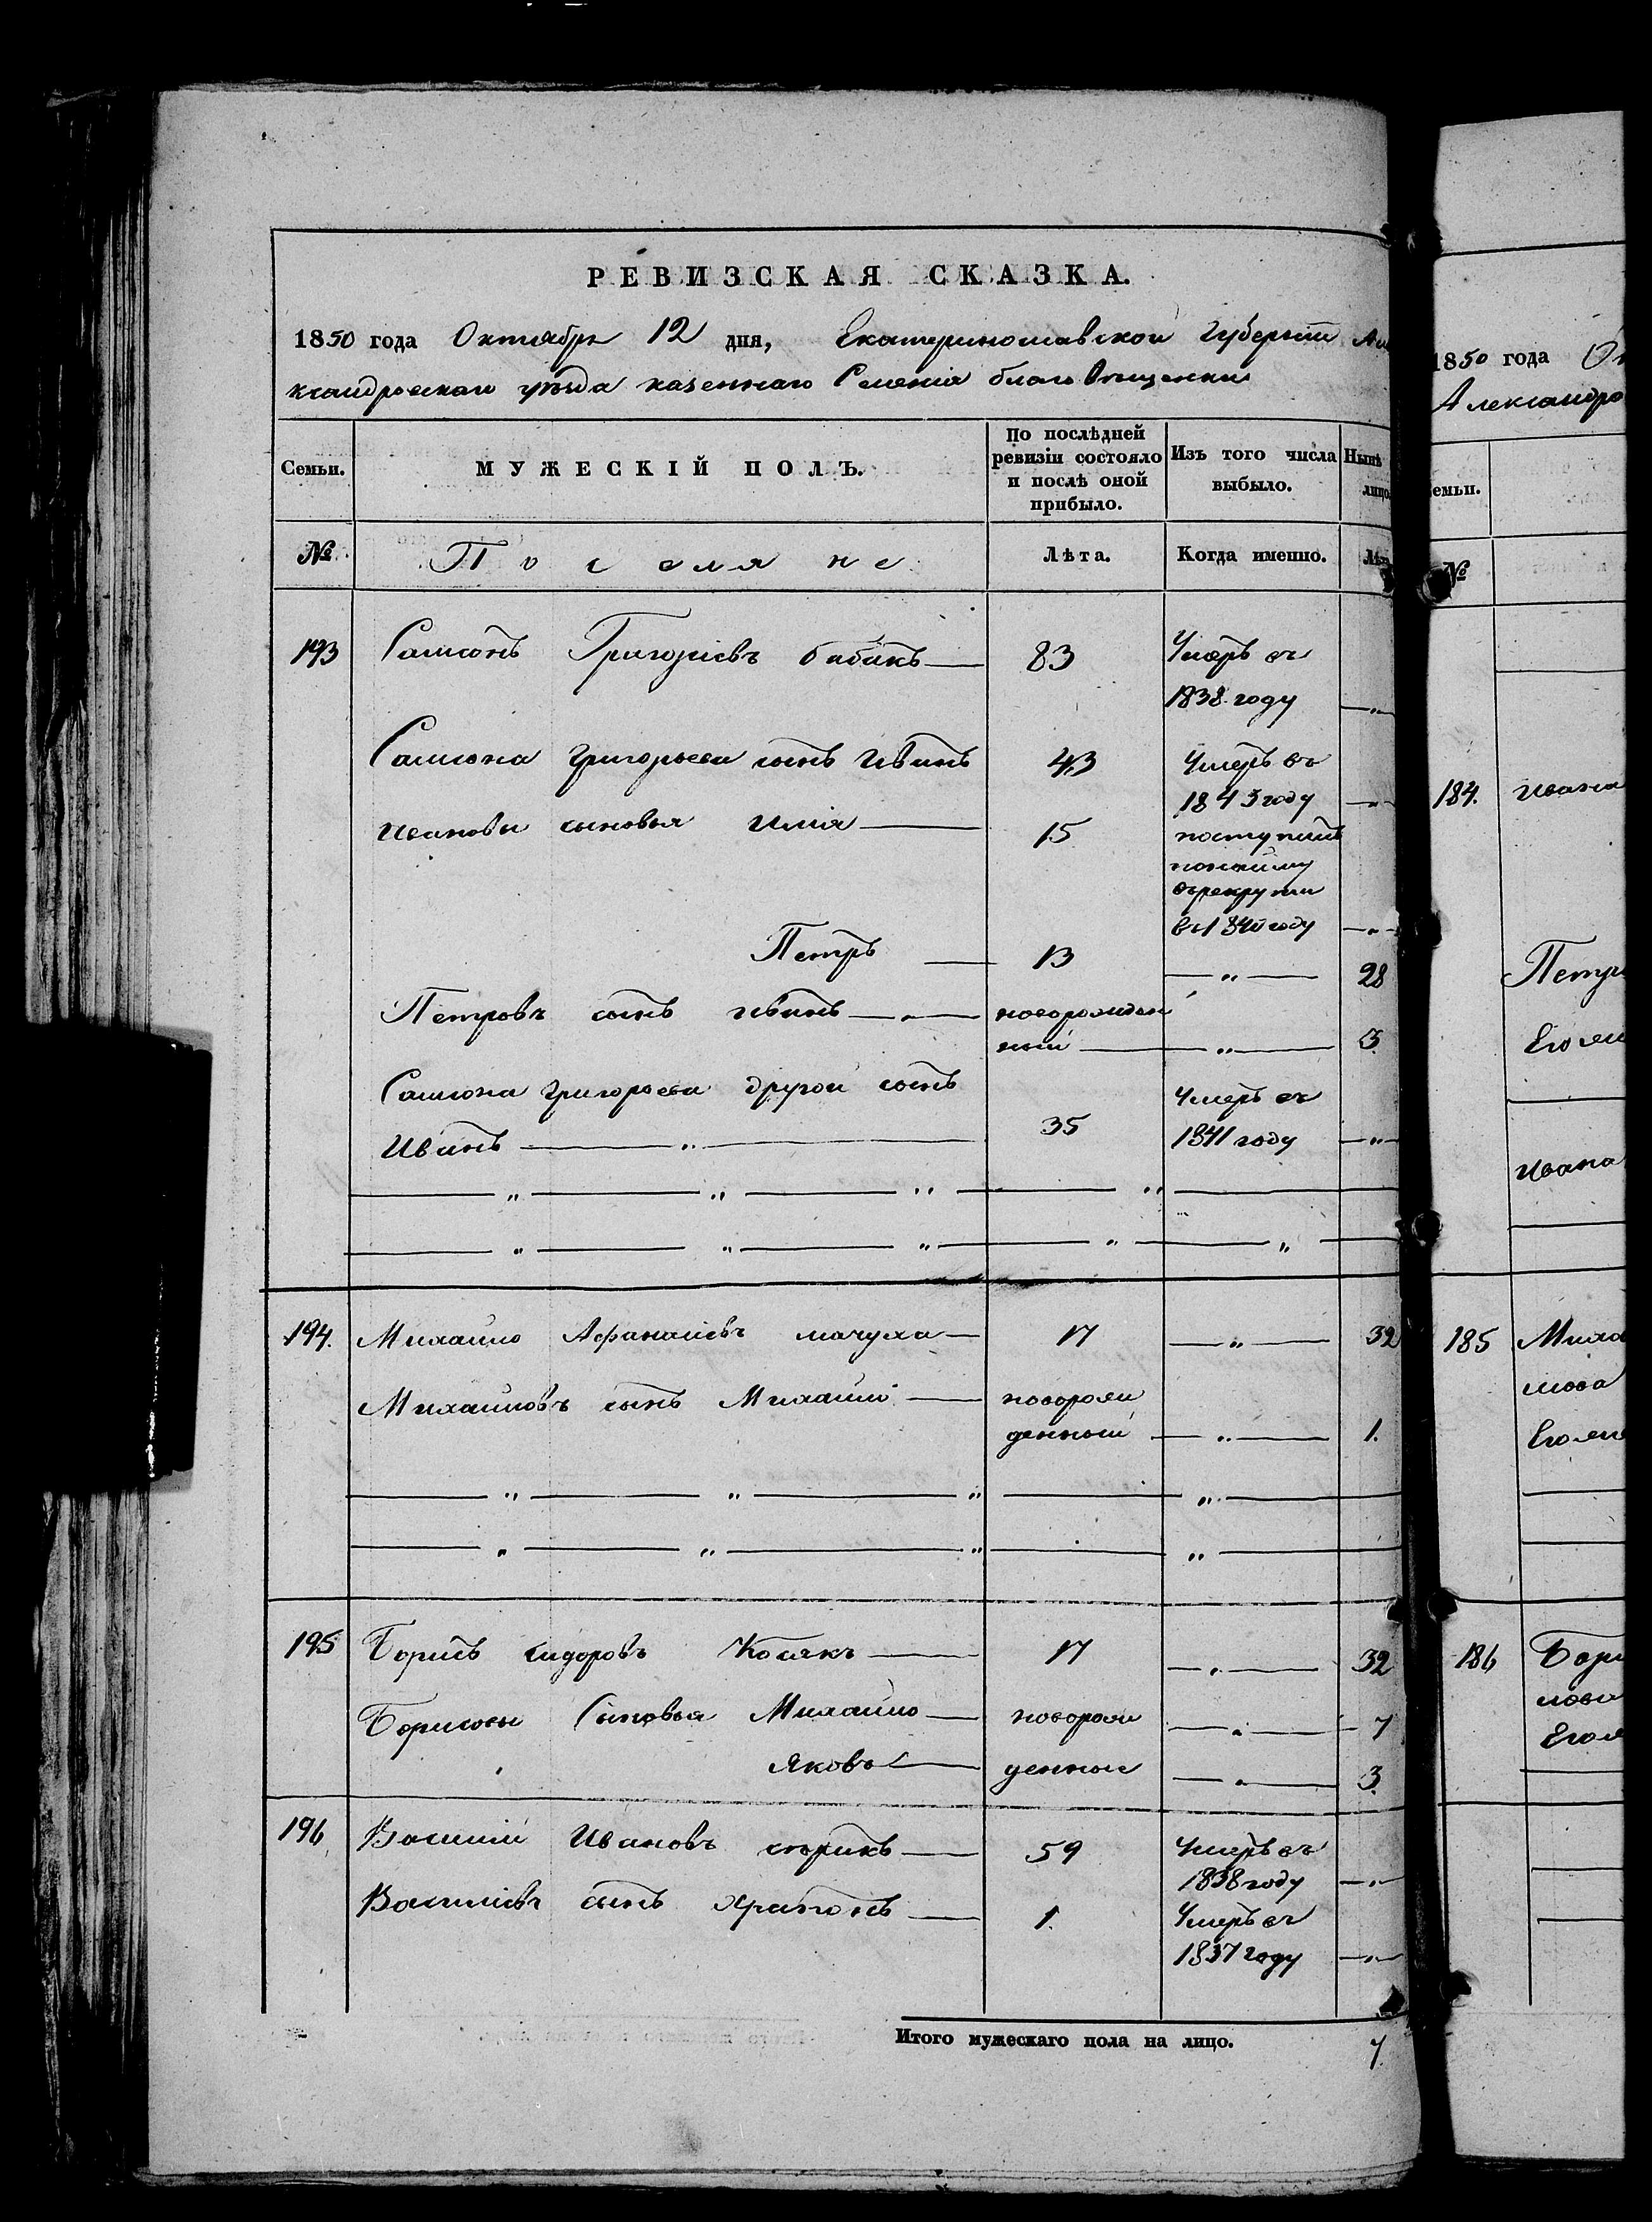 РЕВИЗСКАЯ СКАЗКА.
1850 года Октября 12 дня, Екатеринославской Губернии Але
ксандровскаго уѣзда казеннаго Селенія благовѣщенки
Семьи. МУЖЕСКІЙ ПОЛЪ. По послѣдней ревизіи состояло и послѣ оной прибыло. Изъ того числа выбыло. Нынѣ лицо
№ Поселяне Лѣта. Когда именно. Лѣт
193 Самсонъ Григорьевъ бабакъ 83 Умеръ въ
1838 году „
Самсона Григорьева сынъ Иванъ 43 Умеръ въ
1843 году „
Ивановы сыновья Илія 15 поступилъ
понайму
въ рекруты
въ 1840 году „
Петръ 13 „ 28
Петровъ сынъ Иванъ новорожден
ный „ 3
Самсона Григорьева другой сынъ
Иванъ „ 35 Умеръ въ
1841 году „
194. Михайло Афанасіевъ мачуха 17 „ 32
Михайловъ сынъ Михайло новорож
денный „ 1.
195 Борисъ Сидоровъ Косякъ 17 „ 32
Борисовы Сыновья Михайло новорож „ 7
Яковъ денные „ 3
196 Василій Ивановъ 59 Умеръ въ
1838 году „
Василіевъ сынъ 1. Умеръ въ
1837 году „
Итого мужескаго пола на лицо. 7.
1850 года Ок
Александро
емьи.
№
184. Ивана
Петра
Его же
Ивана
185 Миха
лова
Его же
186 Бори
сова
Его ж